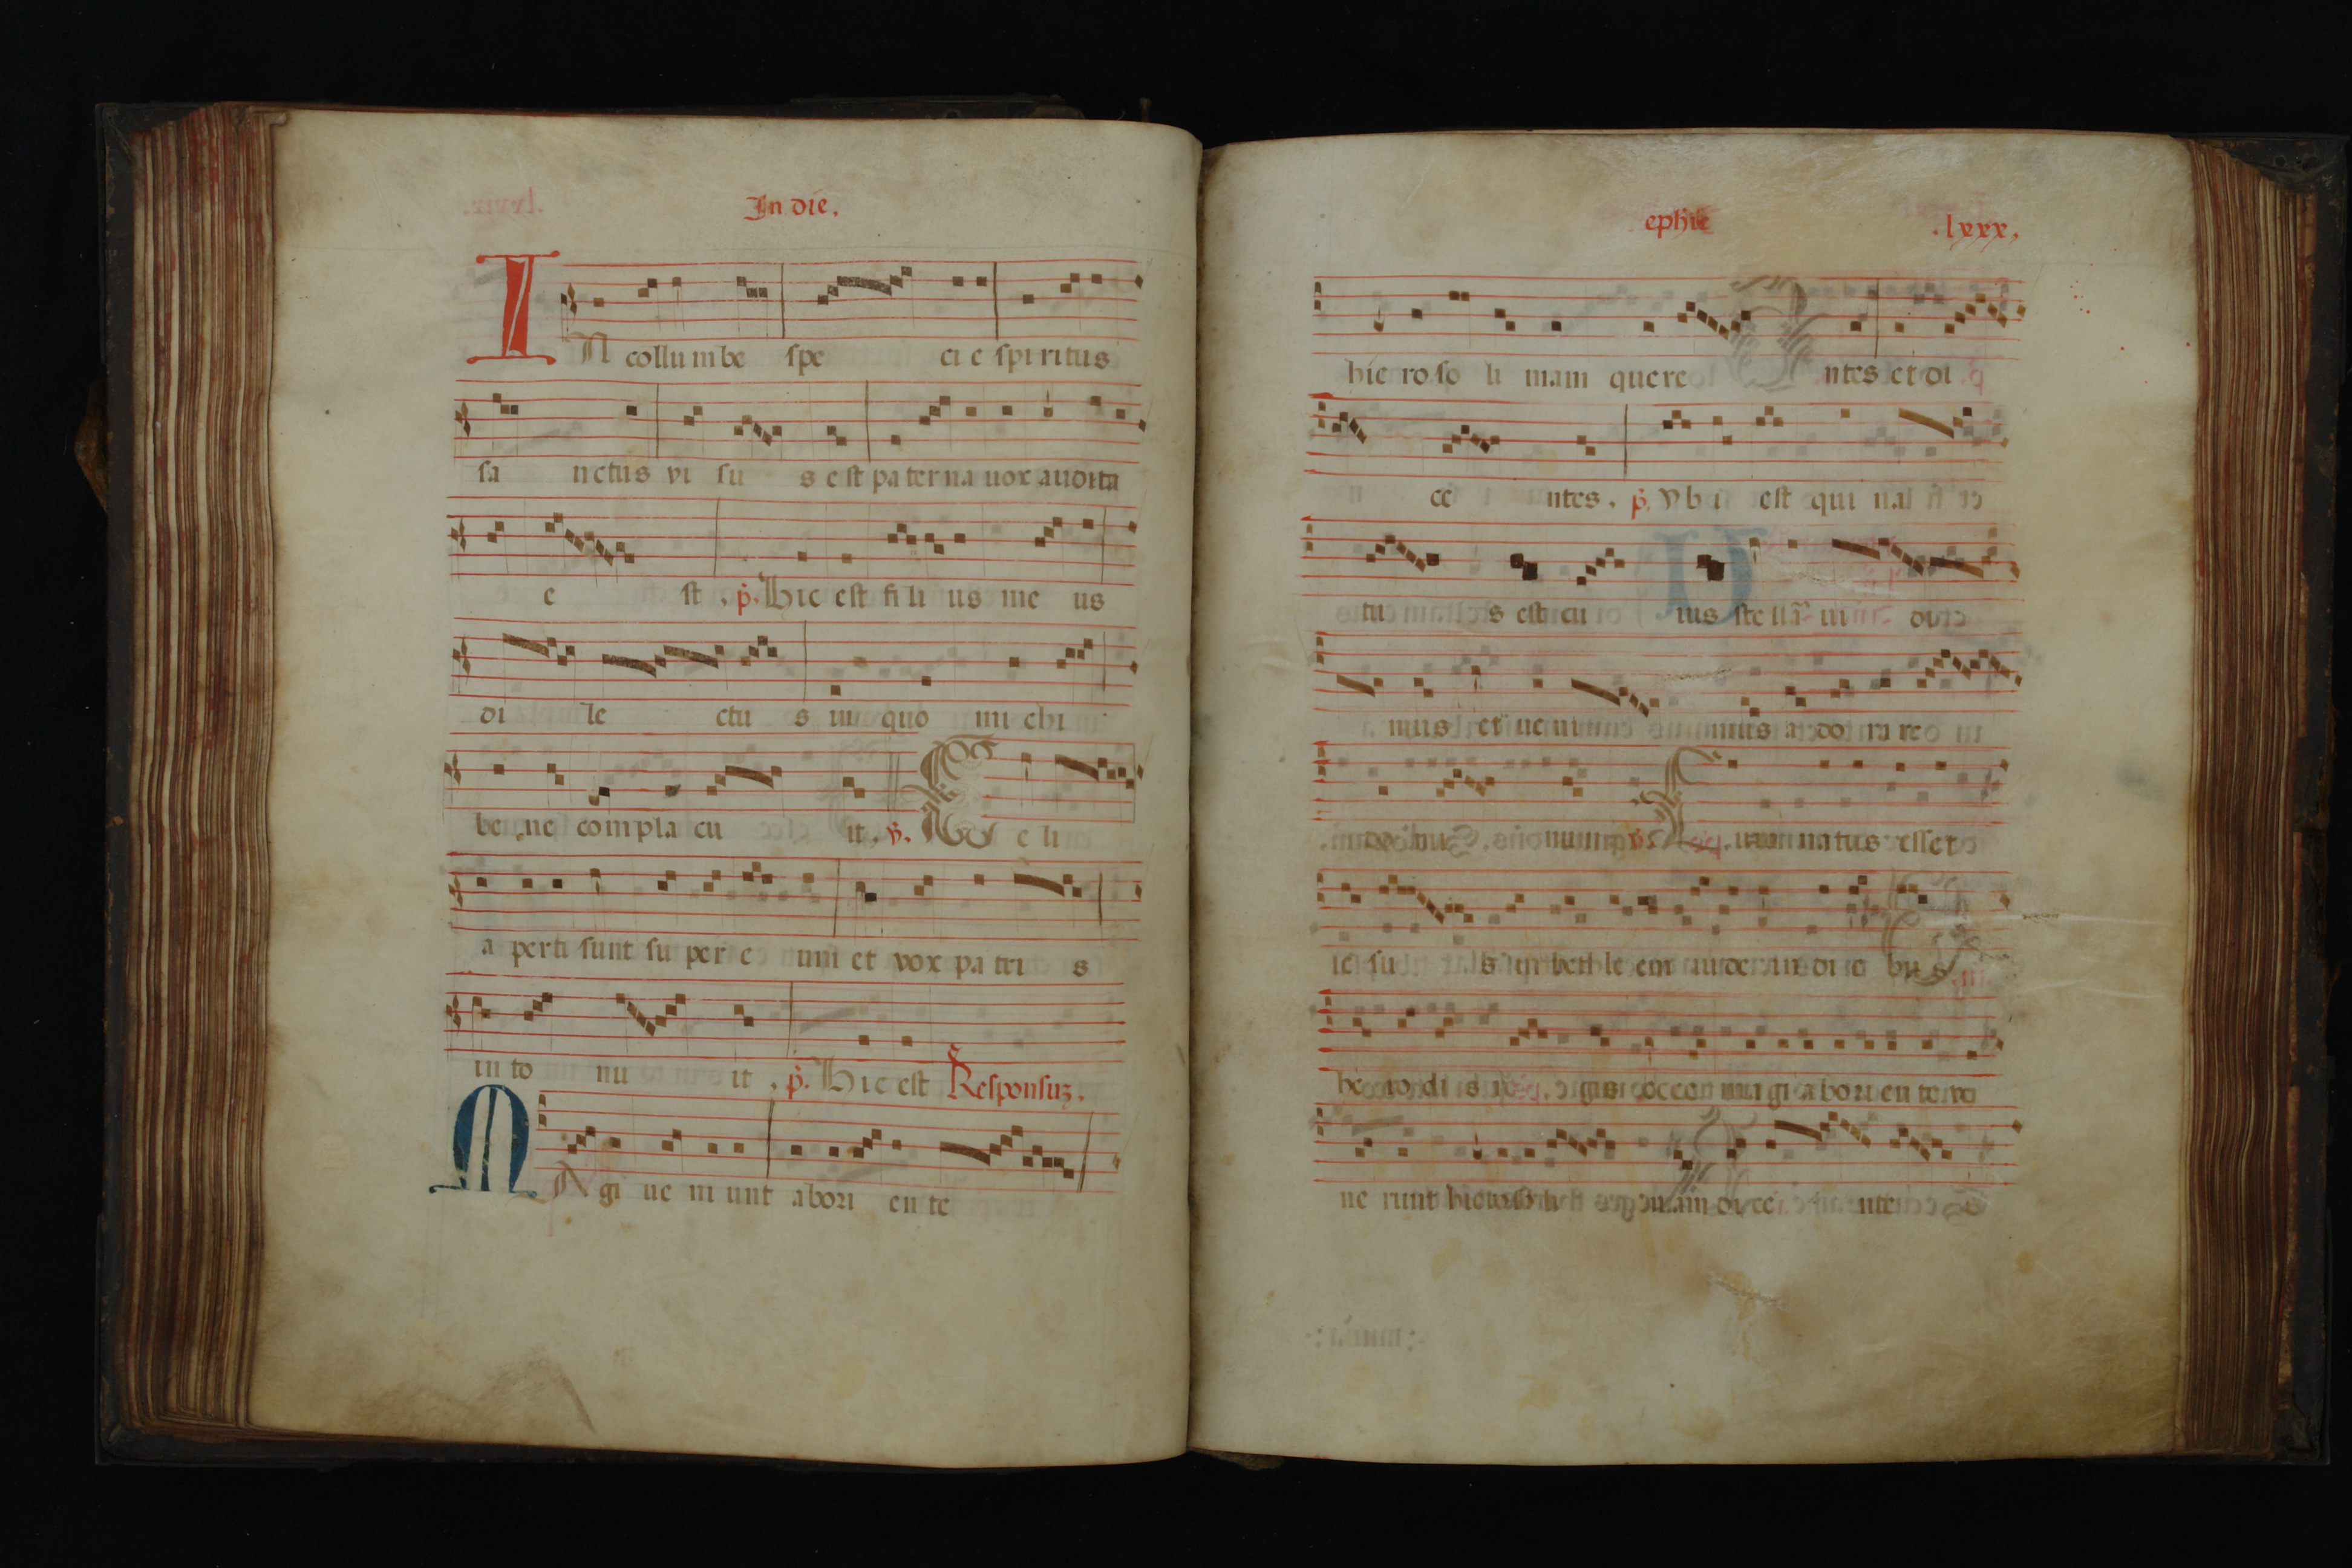 In die.
IN collumbe spe ci e spi ritus
sa nctus vi su s est pa ter na uox audita
e st . p̃. Hic est fi li us me us
di le ctu s in quo mi chi
be ne compla cu it . ỹ. Ce li
a perti sunt su per e um et vox pa tri s
in to nu it . p̃. Hic est Responsuz.
MAgi ue ni unt abori en te
ephie .lxxx.
hie ro so li mam quere ntes et di
ce ntes . p̃. Vb i est qui na
tu s est cu ius ste llã ui di
mus et ue ni mus a do ra re
do mi num ỹ. natus esset
ie su s in beth le em iude in di e bu s
he ro di s re gis ecce magi abori en te ve
ne runt hiero so li mam di ce nte s